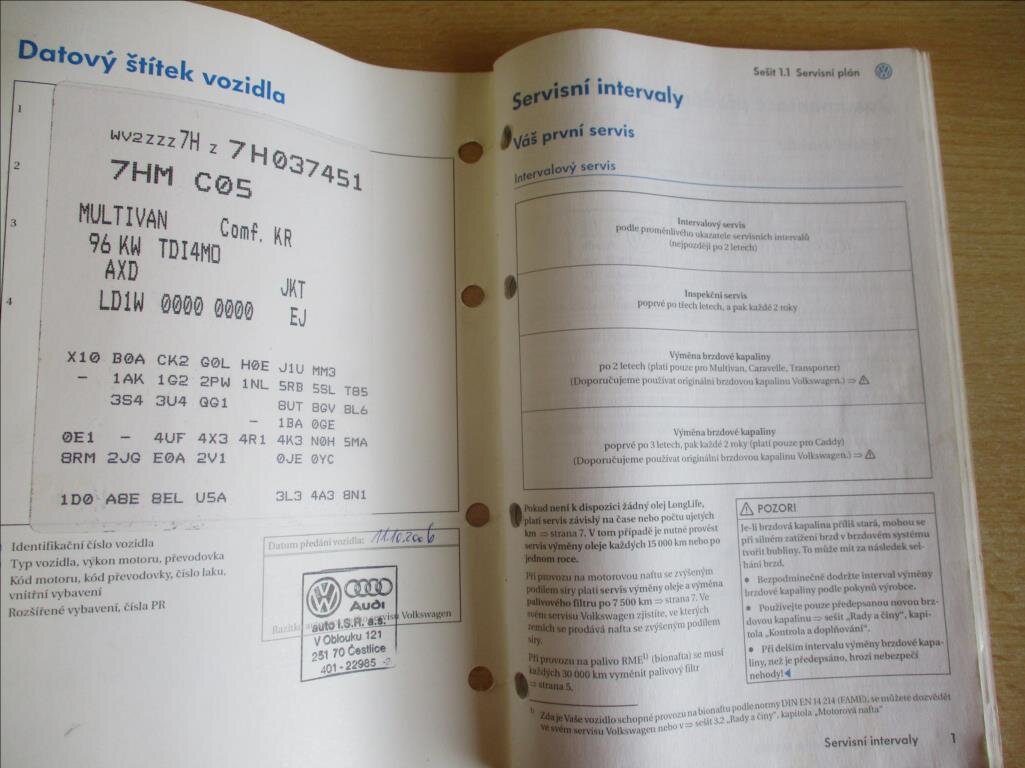 Datový štítek vozidla
1
WV2ZZZ7H Z 7H037451
2
7HM C05
3
MULTIVAN Comf. KR
96 KW TDI4MO
AXD JKT
4
LD1W 0000 0000 EJ
X10 B0A CK2 G0L H0E J1U MM3
- 1AK 1G2 2PW 1NL 5RB 5SL T85
3S4 3U4 QG1 8UT 8GV BL6
- 1BA 0GE
0E1 - 4UF 4X3 4R1 4K3 N0H 5MA
8RM 2JG E0A 2V1 0JE 0YC
1D0 A8E 8EL U5A 3L3 4A3 8N1
Identifikační číslo vozidla
Typ vozidla, výkon motoru, převodovka
Kód motoru, kód převodovky, číslo laku,
vnitřní vybavení
Rozšířené vybavení, čísla PR
Datum předání vozidla: 11.10.2006
Audi
servisu Volkswagen
auto I.S.R. a.s.
V Oblouku 121
251 70 Čestlice
401 - 22985 -2
Sešit 1.1 Servisní plán
Servisní intervaly
Váš první servis
Intervalový servis
Intervalový servis
podle proměnlivého ukazatele servisních intervalů
(nejpozději po 2 letech)
Inspekční servis
poprvé po třech letech, a pak každé 2 roky
Výměna brzdové kapaliny
po 2 letech (platí pouze pro Multivan, Caravelle, Transporter)
(Doporučujeme používat originální brzdovou kapalinu Volkswagen.) ⇒ ⚠
Výměna brzdové kapaliny
poprvé po 3 letech, pak každé 2 roky (platí pouze pro Caddy)
(Doporučujeme používat originální brzdovou kapalinu Volkswagen.) ⇒ ⚠
Pokud není k dispozici žádný olej LongLife,
platí servis závislý na čase nebo počtu ujetých
km ⇒ strana 7. V tom případě je nutné provést
servis výměny oleje každých 15 000 km nebo po
jednom roce.
Při provozu na motorovou naftu se zvýšeným
podílem síry platí servis výměny oleje a výměna
palivového filtru po 7 500 km ⇒ strana 7. Ve
svém servisu Volkswagen zjistíte, ve kterých
zemích se prodává nafta se zvýšeným podílem
síry.
Při provozu na palivo RME¹⁾ (bionafta) se musí
každých 30 000 km vyměnit palivový filtr
⇒ strana 5.
⚠ POZOR!
Je-li brzdová kapalina příliš stará, mohou se
při silném zatížení brzd v brzdovém systému
tvořit bubliny. To může mít za následek sel-
hání brzd.
• Bezpodmínečně dodržte interval výměny
brzdové kapaliny podle pokynů výrobce.
• Používejte pouze předepsanou novou brz-
dovou kapalinu ⇒ sešit „Rady a činy“, kapi-
tola „Kontrola a doplňování“.
• Při delším intervalu výměny brzdové kapa-
liny, než je předepsáno, hrozí nebezpečí
nehody!
¹⁾ Zda je Vaše vozidlo schopné provozu na bionaftu podle normy DIN EN 14 214 (FAME), se můžete dozvědět
ve svém servisu Volkswagen nebo v ⇒ sešit 3.2 „Rady a činy“, kapitola „Motorová nafta“
Servisní intervaly 1